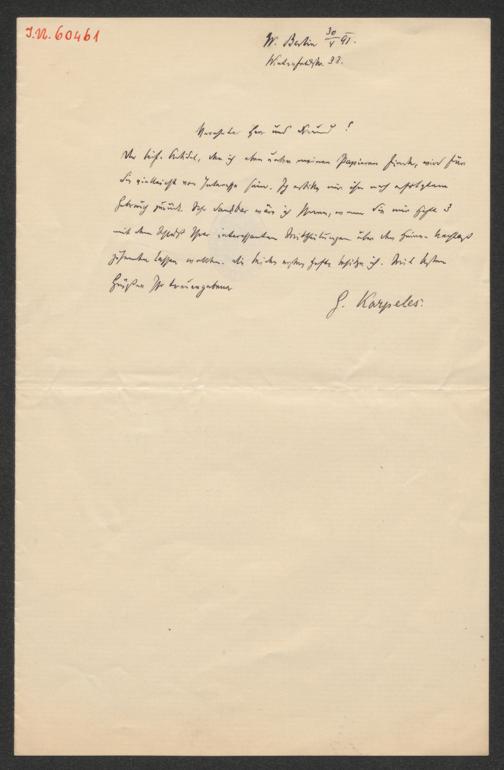 I.N. 60461
W. Berlin 30/V 91.
Verehrter Herr und Freund!
Der beif. Artikel, den ich eben unter meinen Papieren finde, wird für
Sie vielleicht von Interesse sein. Ich erbitte mir ihn nach erfolgtem
Gebrauch zurück. Sehr dankbar wäre ich Ihnen, wenn Sie mir Heft 3
mit dem Schluß Ihrer interessanten Mittheilungen über den Heine-Nachlaß
zusenden lassen wollten. Die beiden ersten Hefte besitze ich. Mit besten
Grüßen Ihr treuergebener
G. Karpeles.